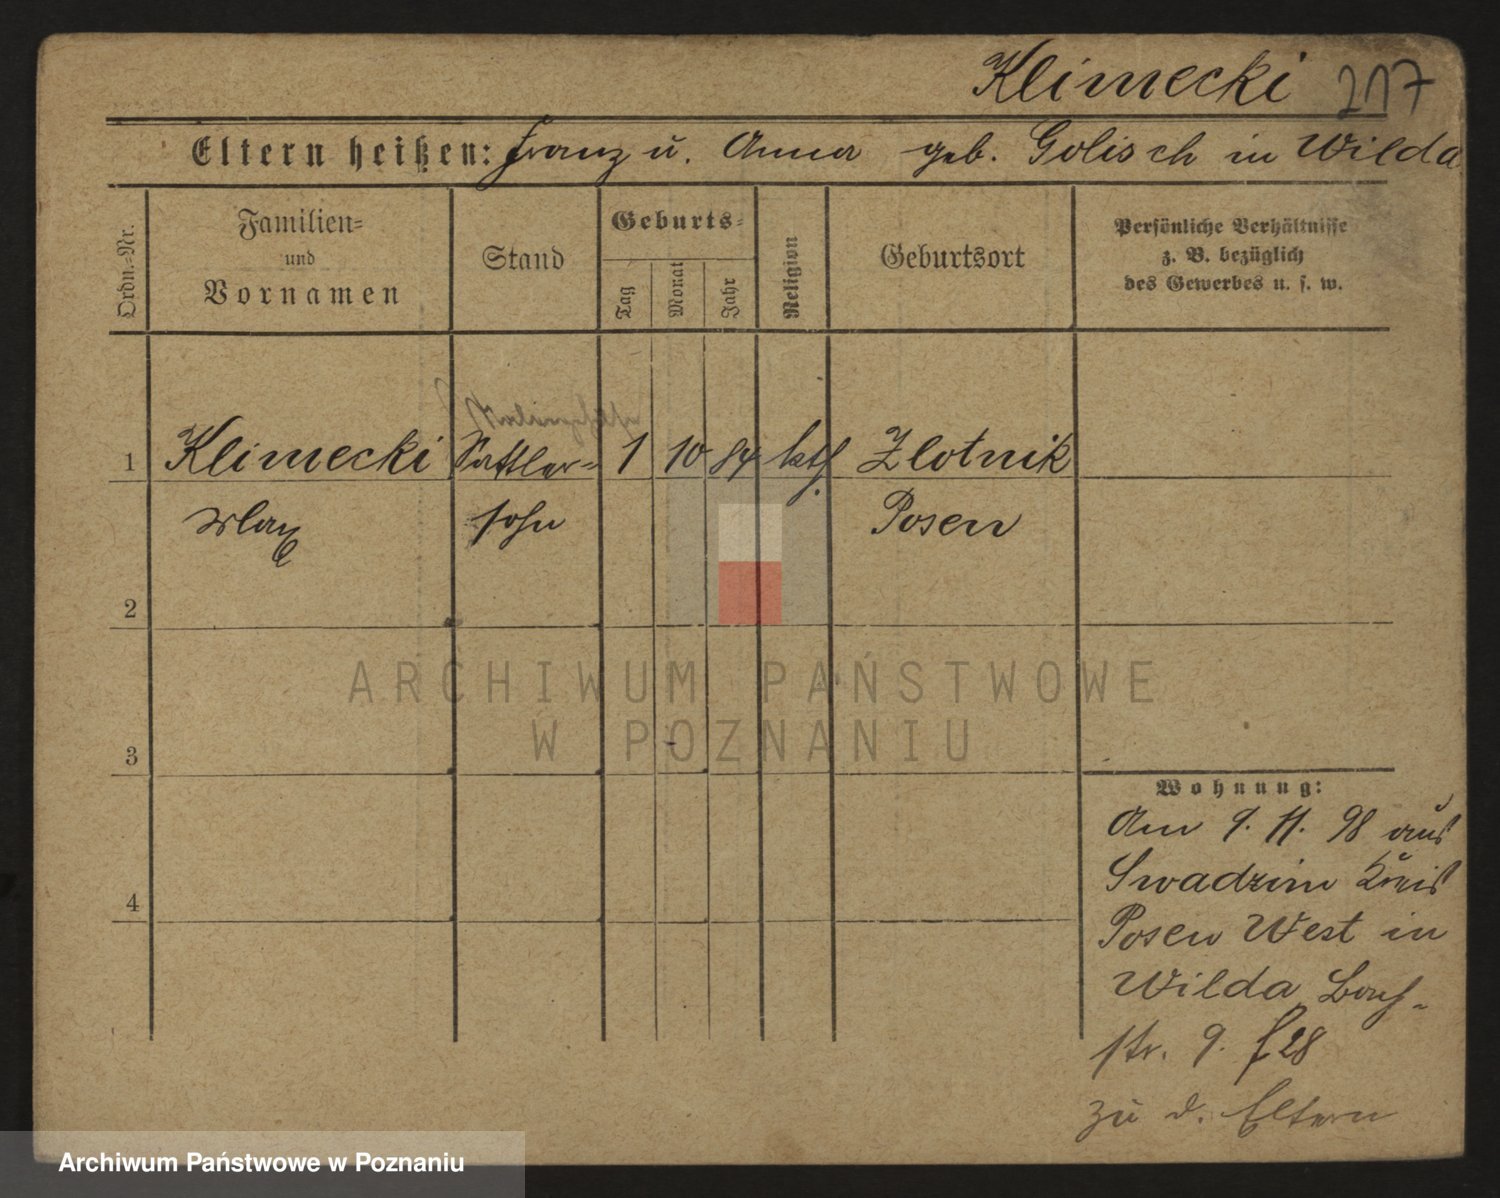 Klimecki 217
Eltern heißen: Franz u. Anna geb. Golisch in Wilda
Ordn.-Nr.
Familien-
und
Vornamen
Stand
Geburts-
Tag
Monat
Jahr
Religion
Geburtsort
Persönliche Verhältnisse
z. B. bezüglich
des Gewerbes u. s. w.
1 Klimecki Sattler- 1 10 84 kth. Zlotnik
Max sohn Posen
2
3
4
Wohnung:
Am 9. 11. 98 aus
Swadzim Kreis
Posen West in
Wilda Bach-
str. 9. f 28
zu d. Eltern
ARCHIWUM PAŃSTWOWE
W POZNANIU
Archiwum Państwowe w Poznaniu